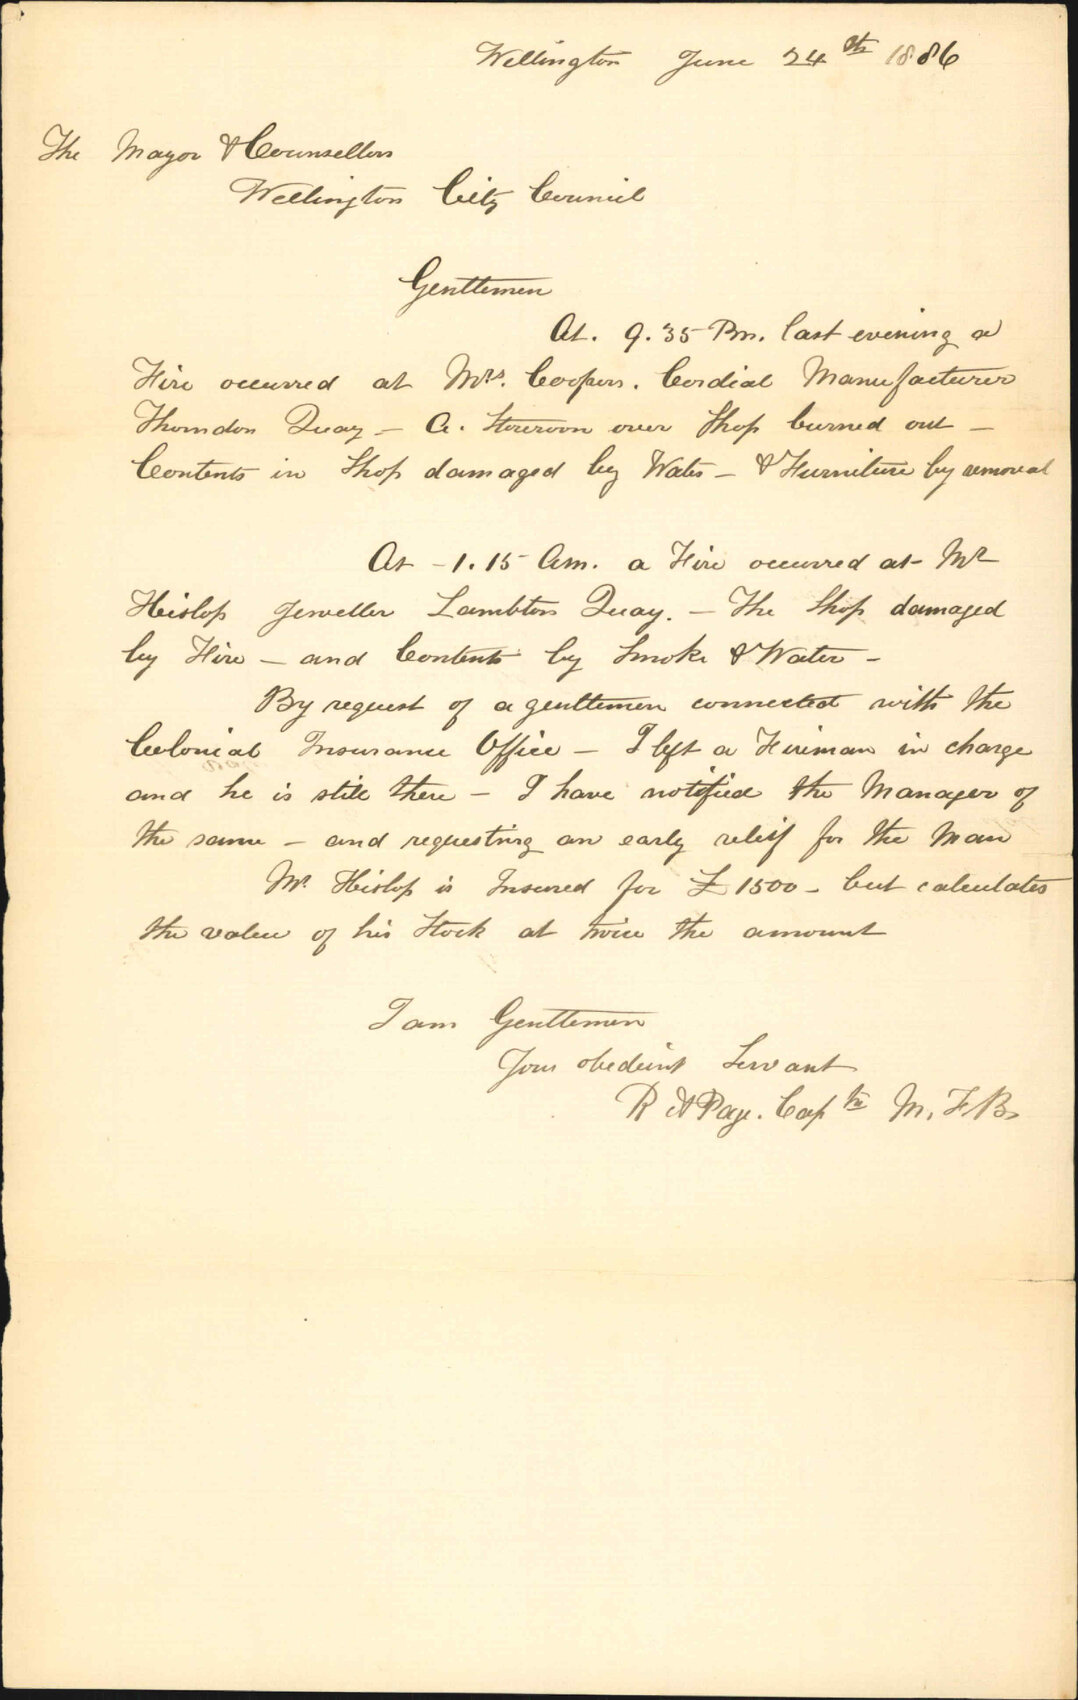 Wellington June 24th 1886
The Mayor & Counsellors
Wellington City Council
Gentlemen
At. 9.35 Pm. last evening a
Fire occurred at Mrs. Coopers. Cordial Manufacturer
Thorndon Quay – A. Storeroom over Shop burned out –
Contents in Shop damaged by Water – & Furniture by removal
At – 1.15 Am. a Fire occurred at Mr
Hislop Jeweller Lambton Quay. – The Shop damaged
by Fire – and Contents by Smoke & Water –
By request of a gentlemen connected with the
Colonial Insurance Office – I left a Fireman in charge
and he is still there – I have notified the Manager of
the same – and requesting an early relief for the Man
Mr. Hislop is Insured for £1500 – but calculates
the value of his Stock at twice the amount
I am Gentlemen
Your obedient Servant
R A Page. Captn M. F. B.